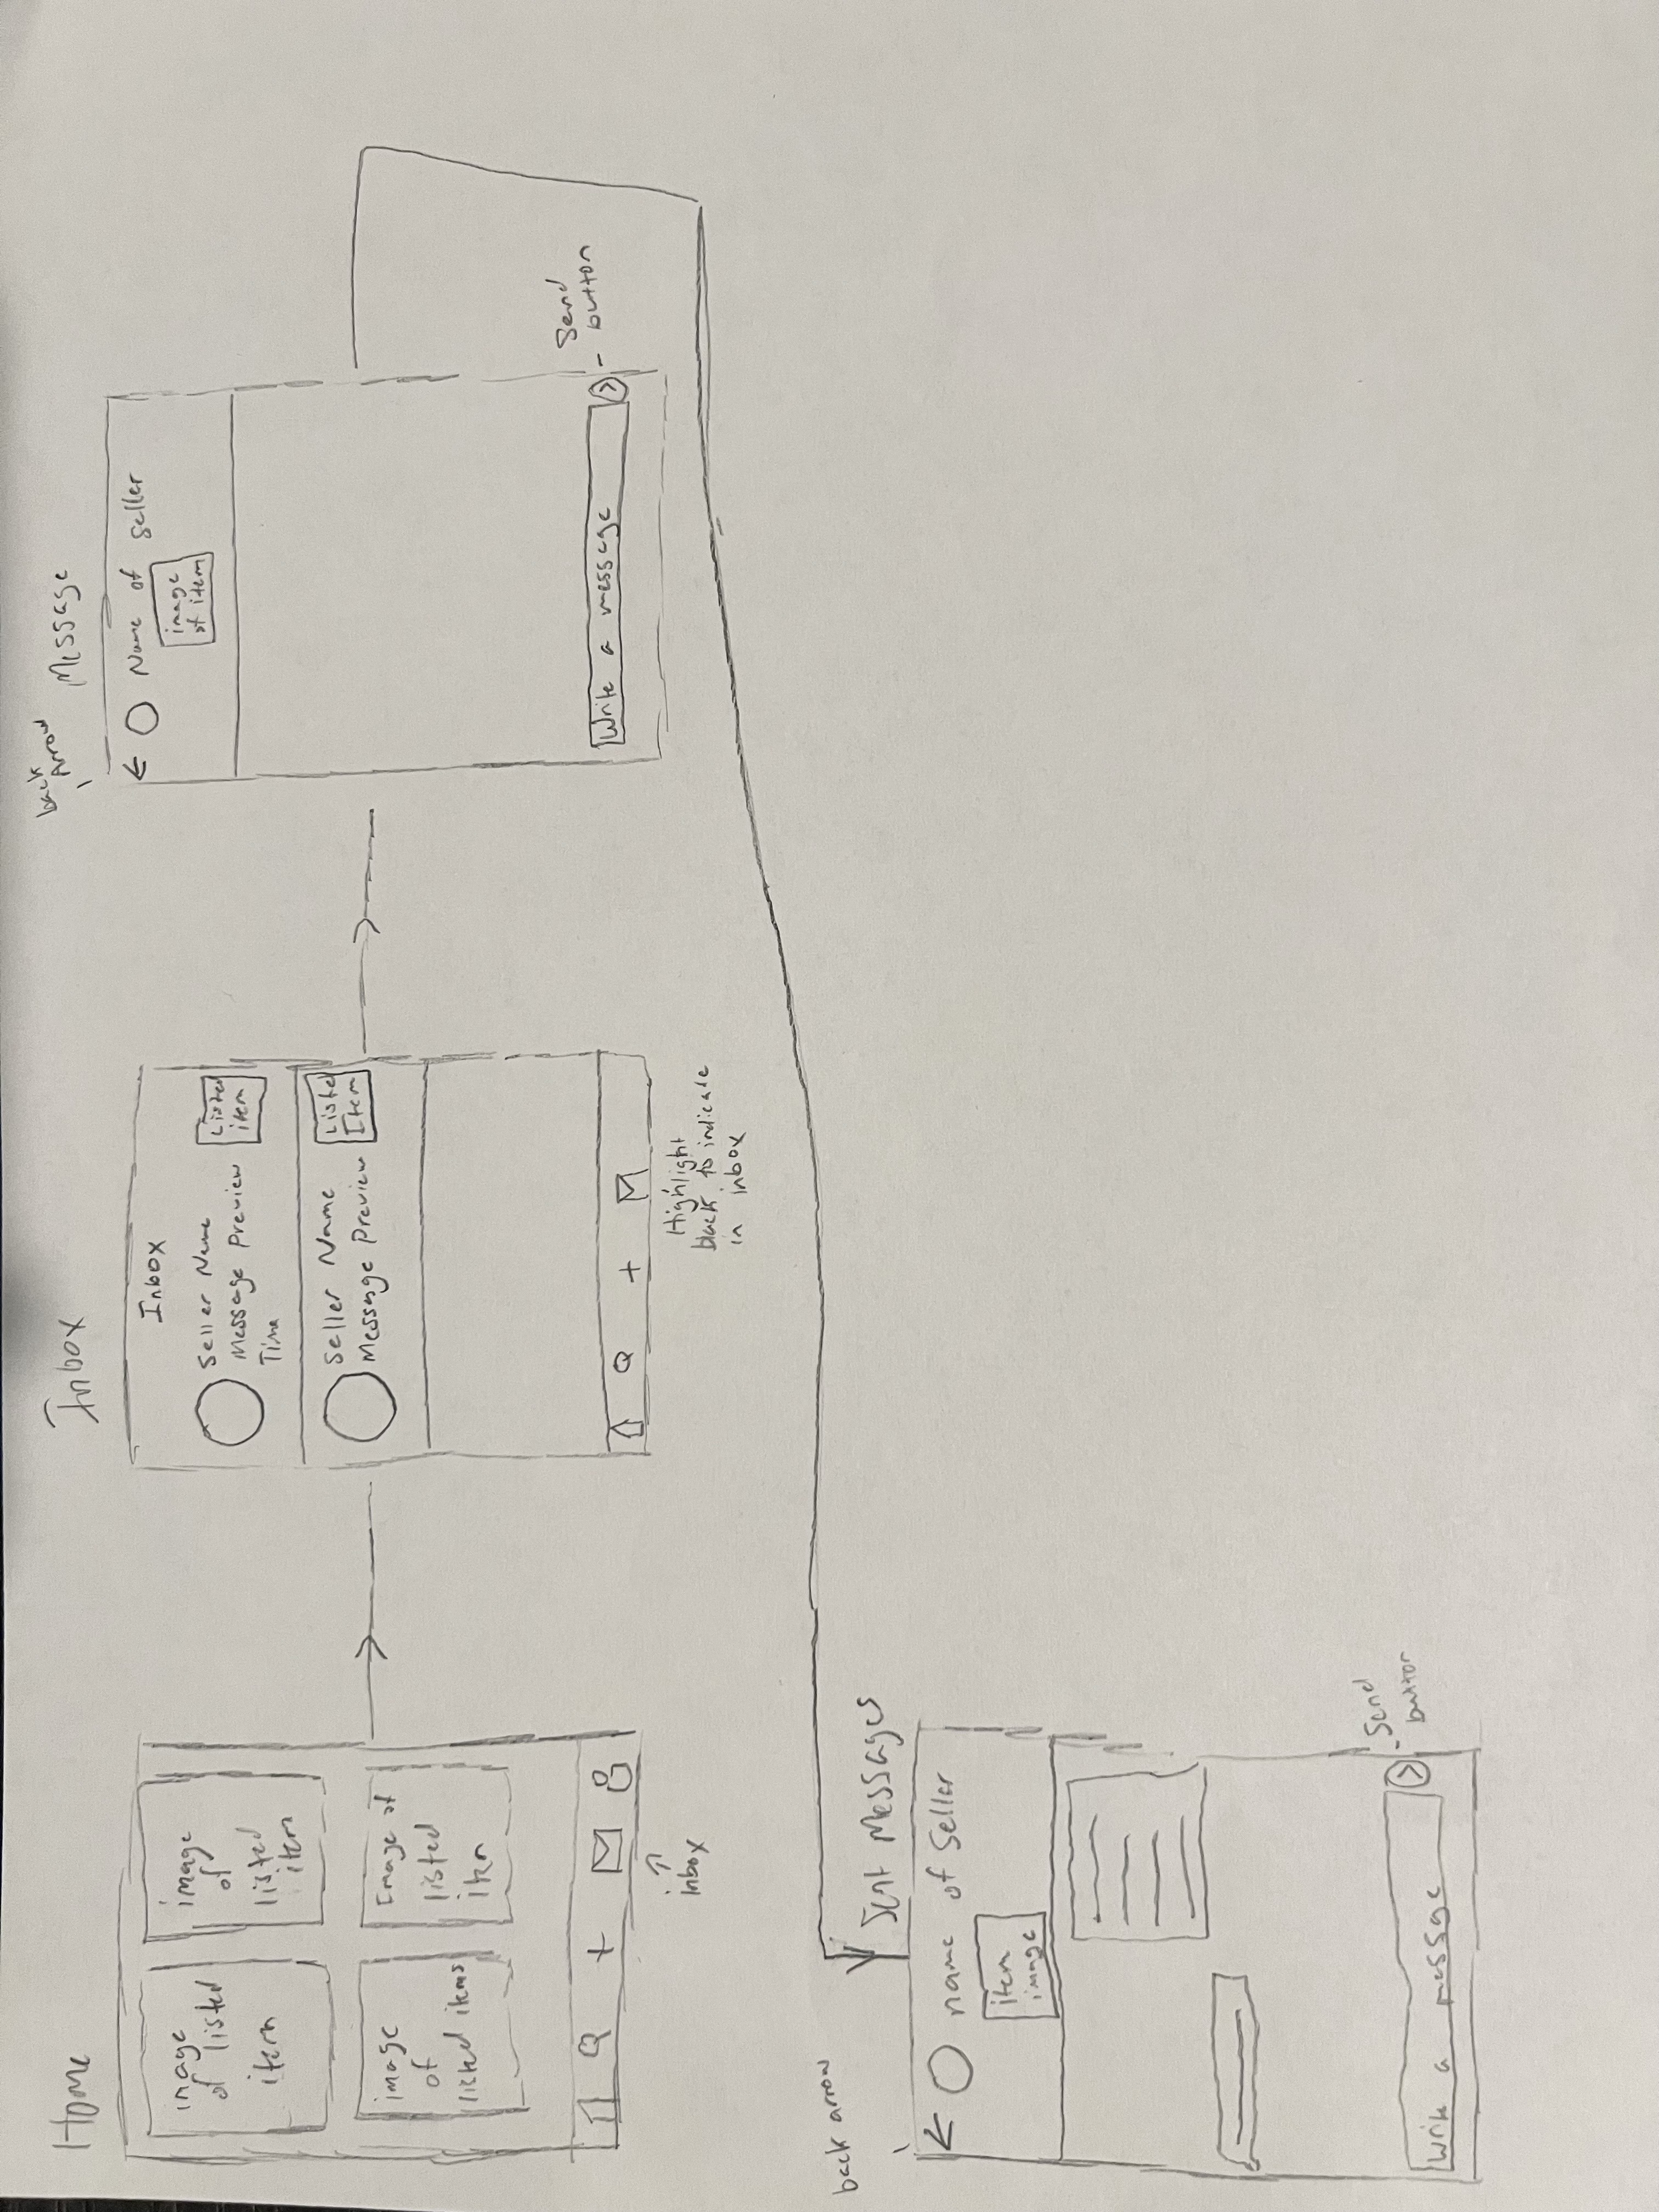 Home
image
of listed
item
image
of
listed
item
image
of
listed items
Image of
listed
item
inbox
Inbox
Inbox
Seller Name
Message Preview
Time
Listed
item
Seller Name
Message Preview
Listed
Item
Highlight
black to indicate
in inbox
back
Arrow
Message
Name of seller
image
of item
Write a message
Send
button
back arrow
Sent Messages
name of Seller
item
image
Write a message
Send
button